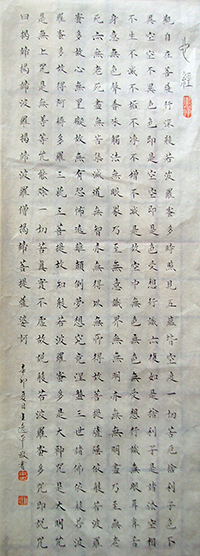 心經
觀自在菩薩行深般若波羅蜜多時照見五蘊皆空度一切苦厄舍利子色不
異空空不異色色即是空空即是色受想行識亦復如是舍利子是諸法空相
不生不滅不垢不淨不增不減是故空中無色無受想行識無眼耳鼻舌
身意無色聲香味觸法無眼界乃至無意識界無無明亦無無明盡乃至無老
死亦無老死盡無苦集滅道無智亦無得以無所得故菩提薩埵依般若波羅
蜜多故心無罣礙無罣礙故無有恐怖遠離顛倒夢想究竟涅槃三世諸佛依般若波羅
蜜多故得阿耨多羅三藐三菩提故知般若波羅蜜多是大神咒是大明咒
是無上咒是無等等咒能除一切苦真實不虛故說般若波羅蜜多咒即說咒
曰揭諦揭諦波羅揭諦波羅僧揭諦菩提薩婆訶
辛卯夏月王 敬書